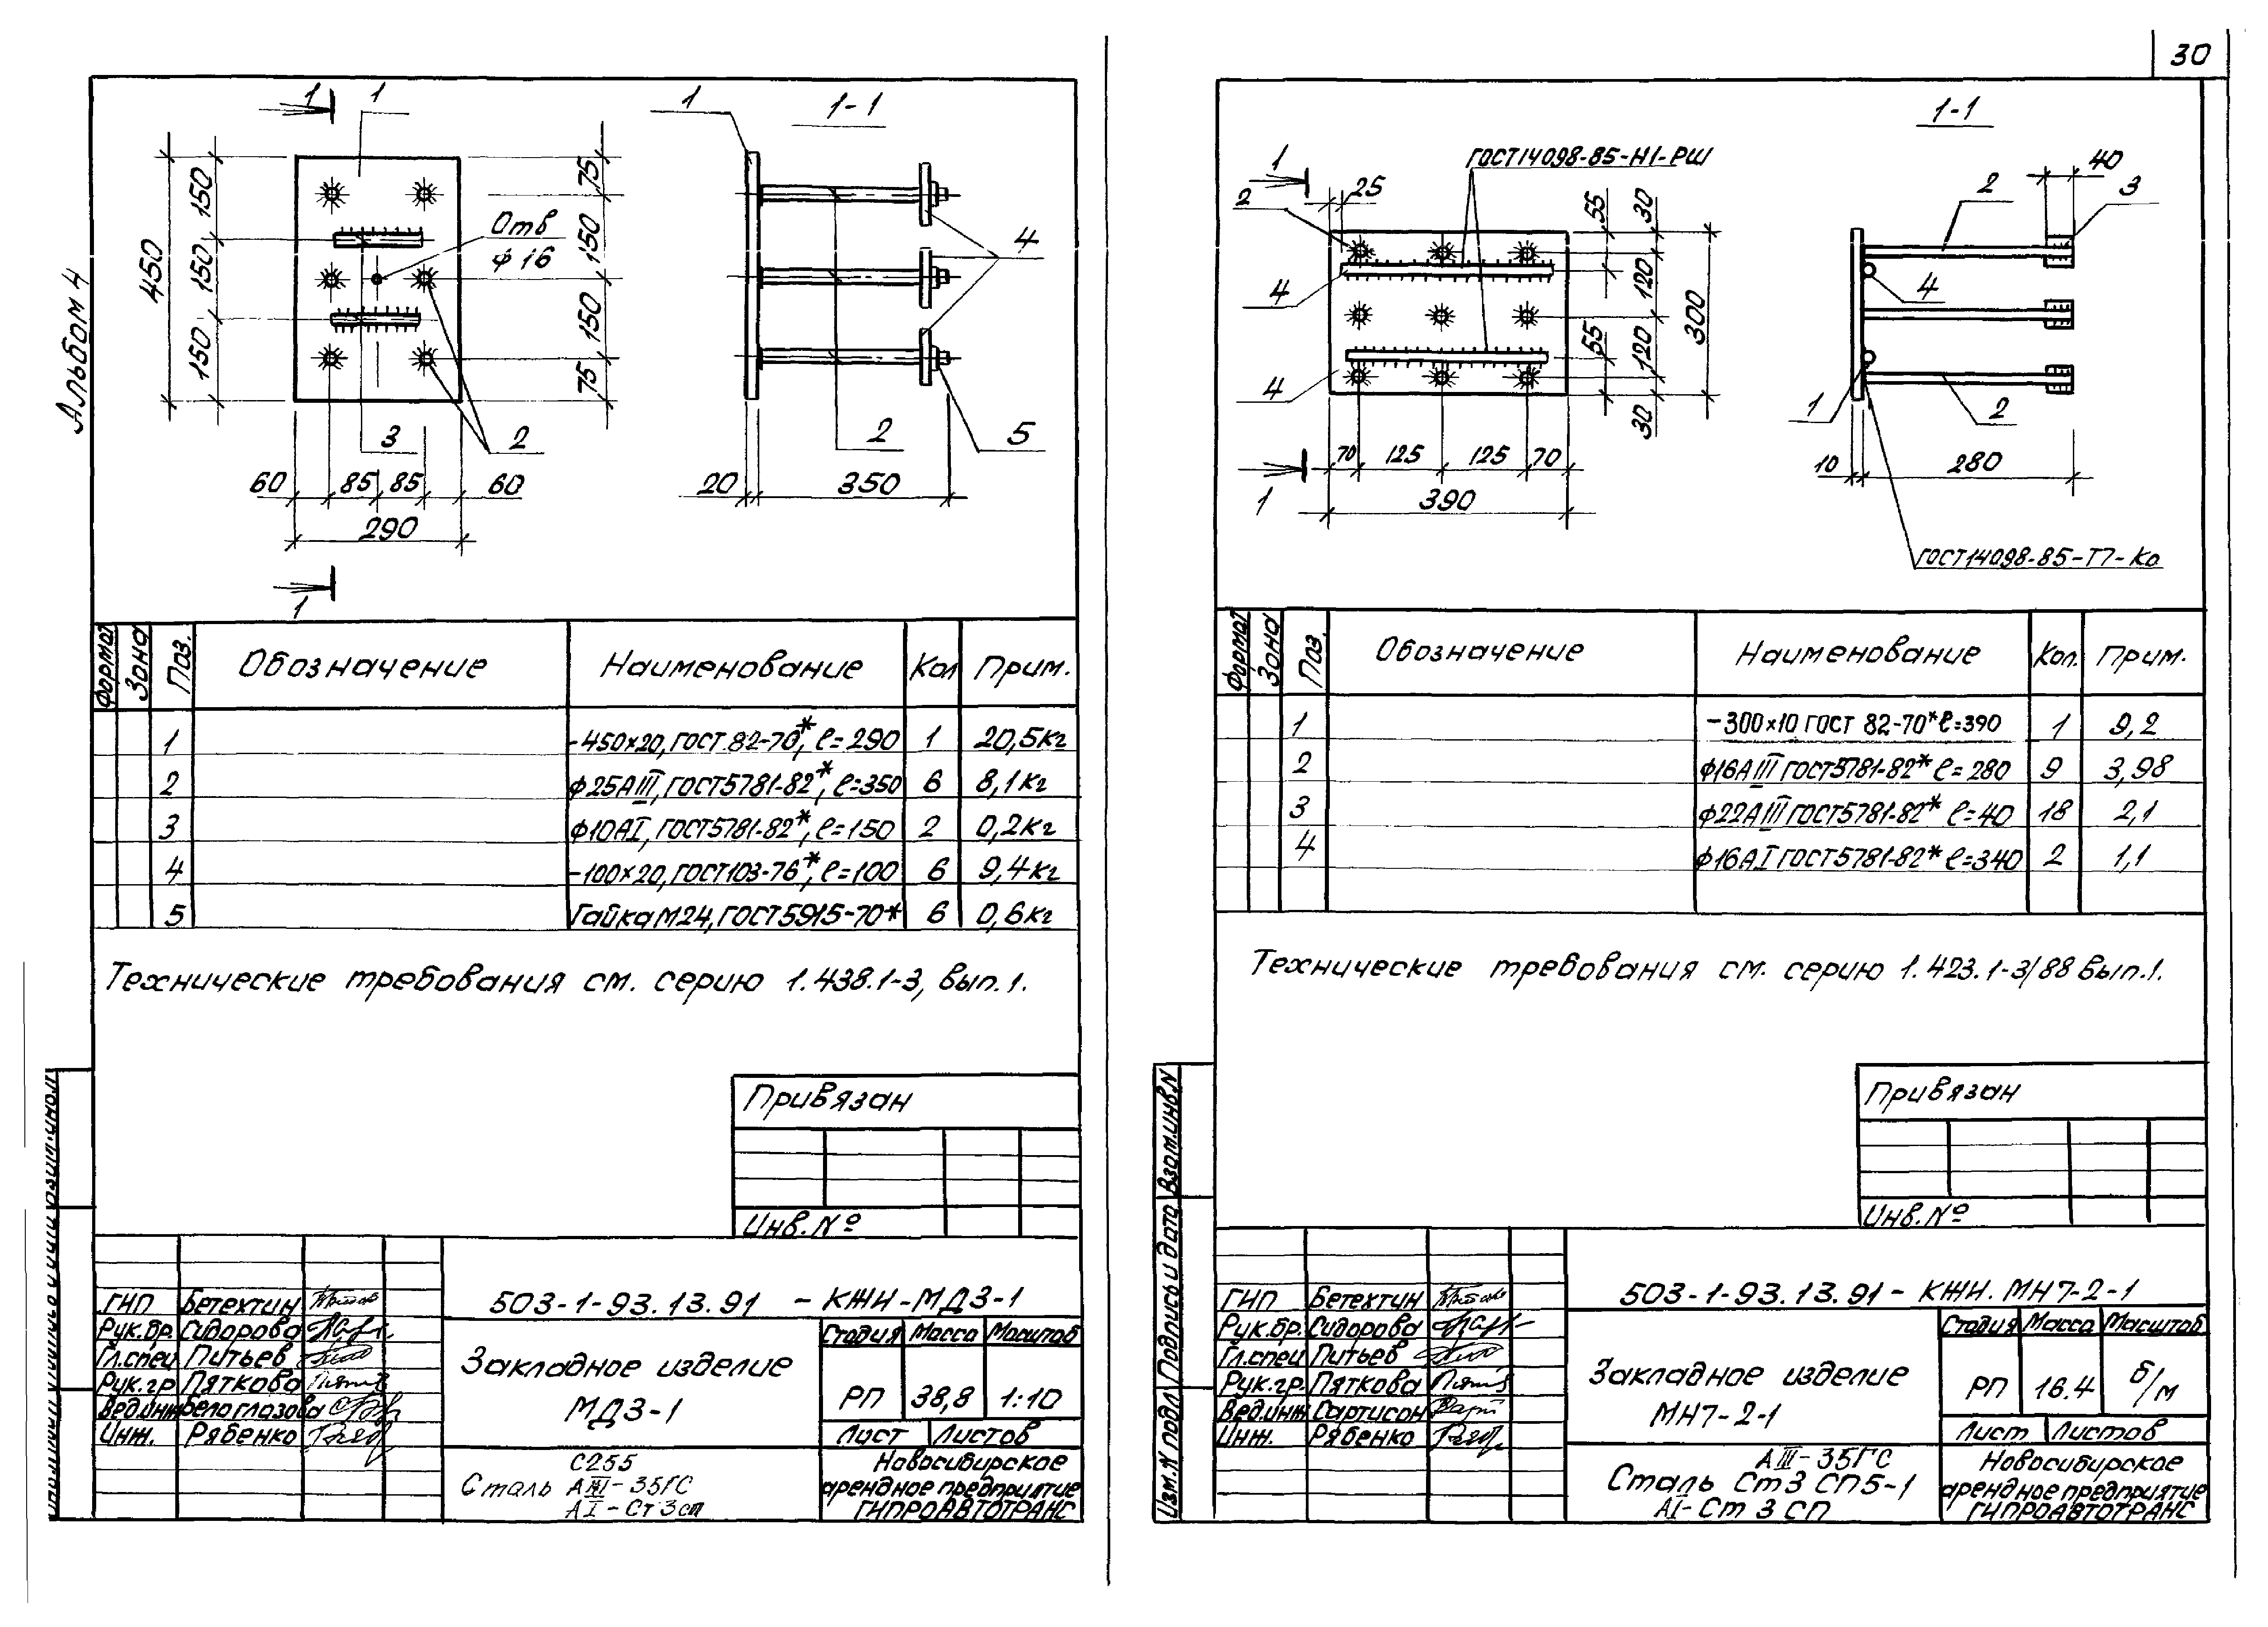 30
Альбом 4
1 1 1 1-1
450 150 150 150
Отв
ф16
75 150 150 75
4
3 2 2 5
60 85 85 60
290
20 350
1
Формат Зона Поз. Обозначение Наименование Кол Прим.
1 -450×20, ГОСТ 82-70*, ℓ=290 1 20,5кг
2 ф25АIII, ГОСТ5781-82*, ℓ=350 6 8,1кг
3 ф10АI, ГОСТ5781-82*, ℓ=150 2 0,2кг
4 -100×20, ГОСТ103-76*, ℓ=100 6 9,4кг
5 Гайка М24, ГОСТ5915-70* 6 0,6кг
Технические требования см. серию 1.438.1-3, вып.1.
Привязан
Инв.№
503-1-93.13.91 - КЖИ-МД3-1
ГИП Бетехтин
Рук.бр. Сидорова
Гл.спец Питьев
Рук.гр Пяткова
Вед.инж Белоглазова
Инж. Рябенко
Закладное изделие
МД3-1
Стадия Масса Масштаб
РП 38,8 1:10
Лист Листов
С255
Сталь АIII-35ГС
АI-Ст3сп
Новосибирское
арендное предприятие
ГИПРОАВТОТРАНС
1-1
ГОСТ14098-85-Н1-РШ
1 2 25 55 30 40 2 3
4 120 300 4
4 55 120 30 1 2
70 125 125 70
390
1
10 280
ГОСТ14098-85-Т7-Ко
Формат Зона Поз. Обозначение Наименование Кол. Прим.
1 -300×10 ГОСТ 82-70* ℓ=390 1 9,2
2 ф16АIII ГОСТ5781-82* ℓ=280 9 3,98
3 ф22АIII ГОСТ5781-82* ℓ=40 18 2,1
4 ф16АI ГОСТ5781-82* ℓ=340 2 1,1
Технические требования см. серию 1.423.1-3/88 вып.1.
Привязан
Инв.№
Взам.инв.N
Подпись и дата
Изм.N подл
503-1-93.13.91 - КЖИ.МН7-2-1
ГИП Бетехтин
Рук.бр. Сидорова
Гл.спец Питьев
Рук.гр. Пяткова
Вед.инж Сартисон
Инж. Рябенко
Закладное изделие
МН7-2-1
Стадия Масса Масштаб
РП 16.4 б/м
Лист Листов
АIII-35ГС
Сталь Ст3 СП5-1
АI-Ст 3 СП
Новосибирское
арендное предприятие
ГИПРОАВТОТРАНС